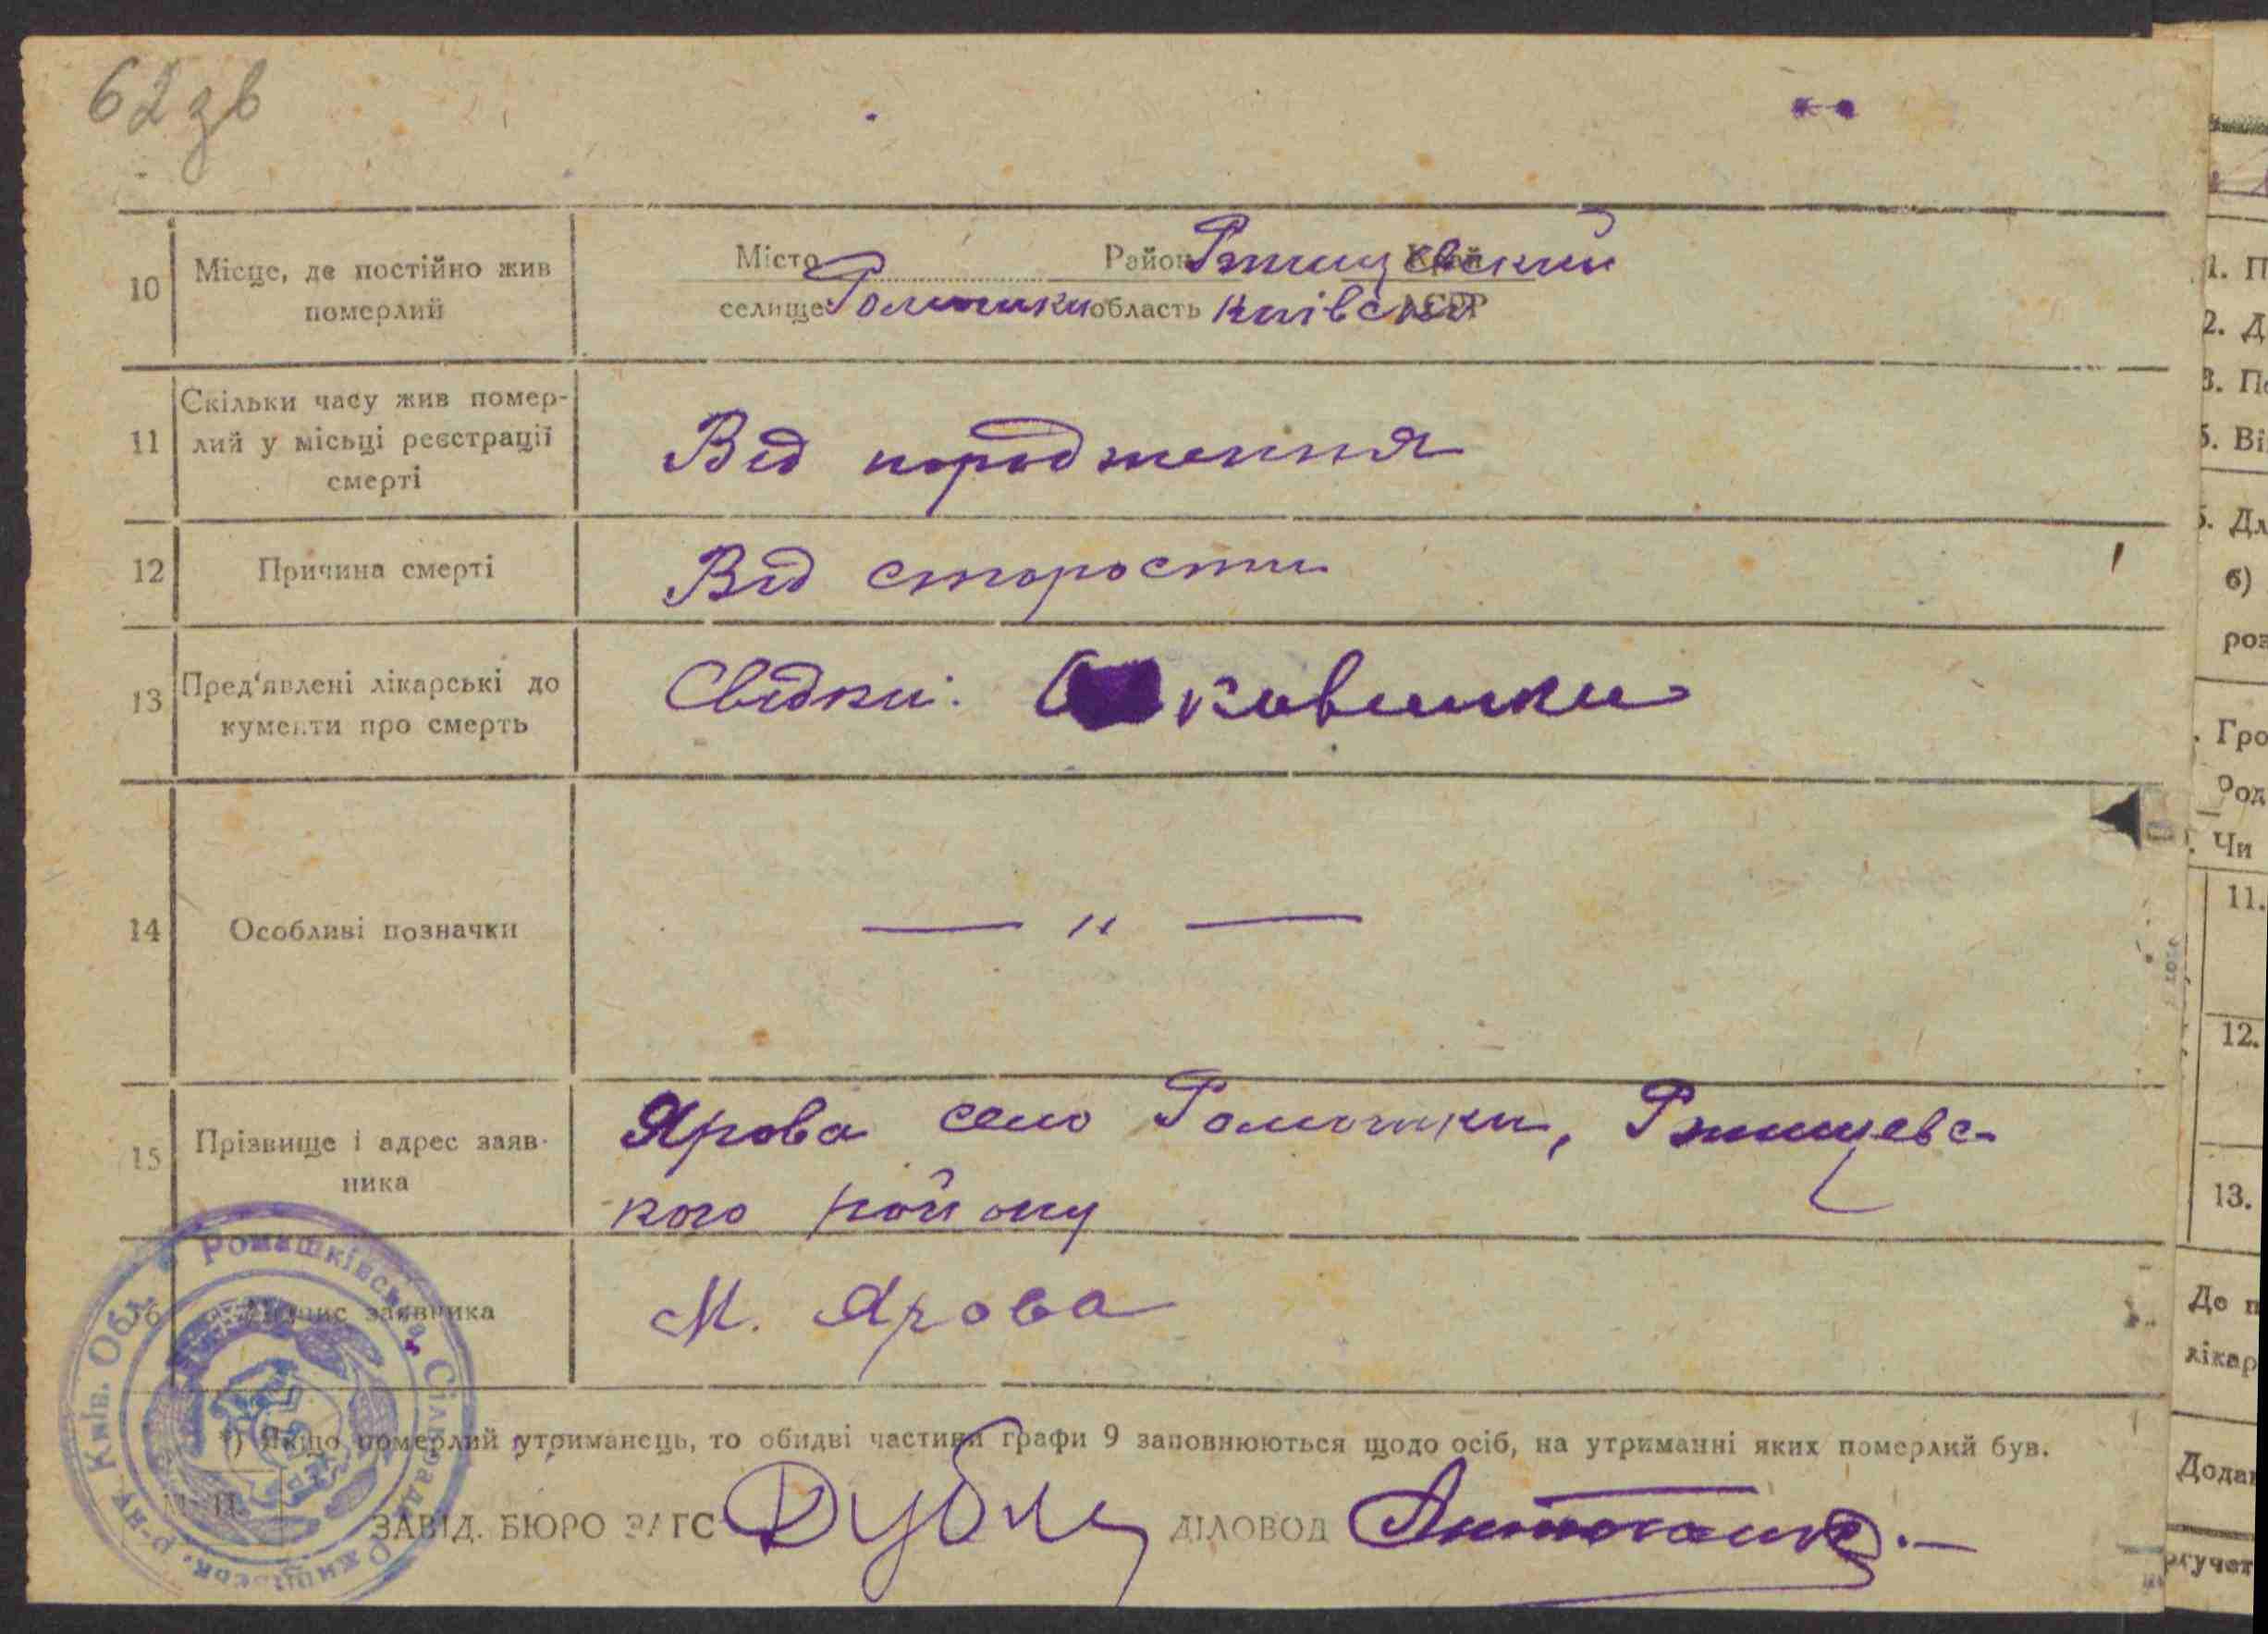 62 зв
10 Місце, де постійно жив
померлий
Місто Район Ржищевский Край
селище Ромашки область Київська АСРР
11 Скільки часу жив помер-
лий у місьці реєстрації
смерті
Від народження
12 Причина смерті
Від старости
13 Пред'явлені лікарські до
кументи про смерть
Свідки:
14 Особливі позначки
— " —
15 Прізвище і адрес заяв-
ника
Ярова село Ромашки, Ржищевс-
кого району
16 Підпис заявника
М. Ярова
*) Якщо померлий утриманець, то обидві частини графи 9 заповнюються щодо осіб, на утриманні яких померлий був.
М. П.
ЗАВІД. БЮРО ЗАГС ДІЛОВОД
Ромашківська Сілкрада Ржищівськ. р-ну Київ. Обл.
1. П
2. Д
3. По
5. Ві
5. Дл
б)
роз
Гро
Род
Чи
11.
12.
13.
До п
лікар
Додат